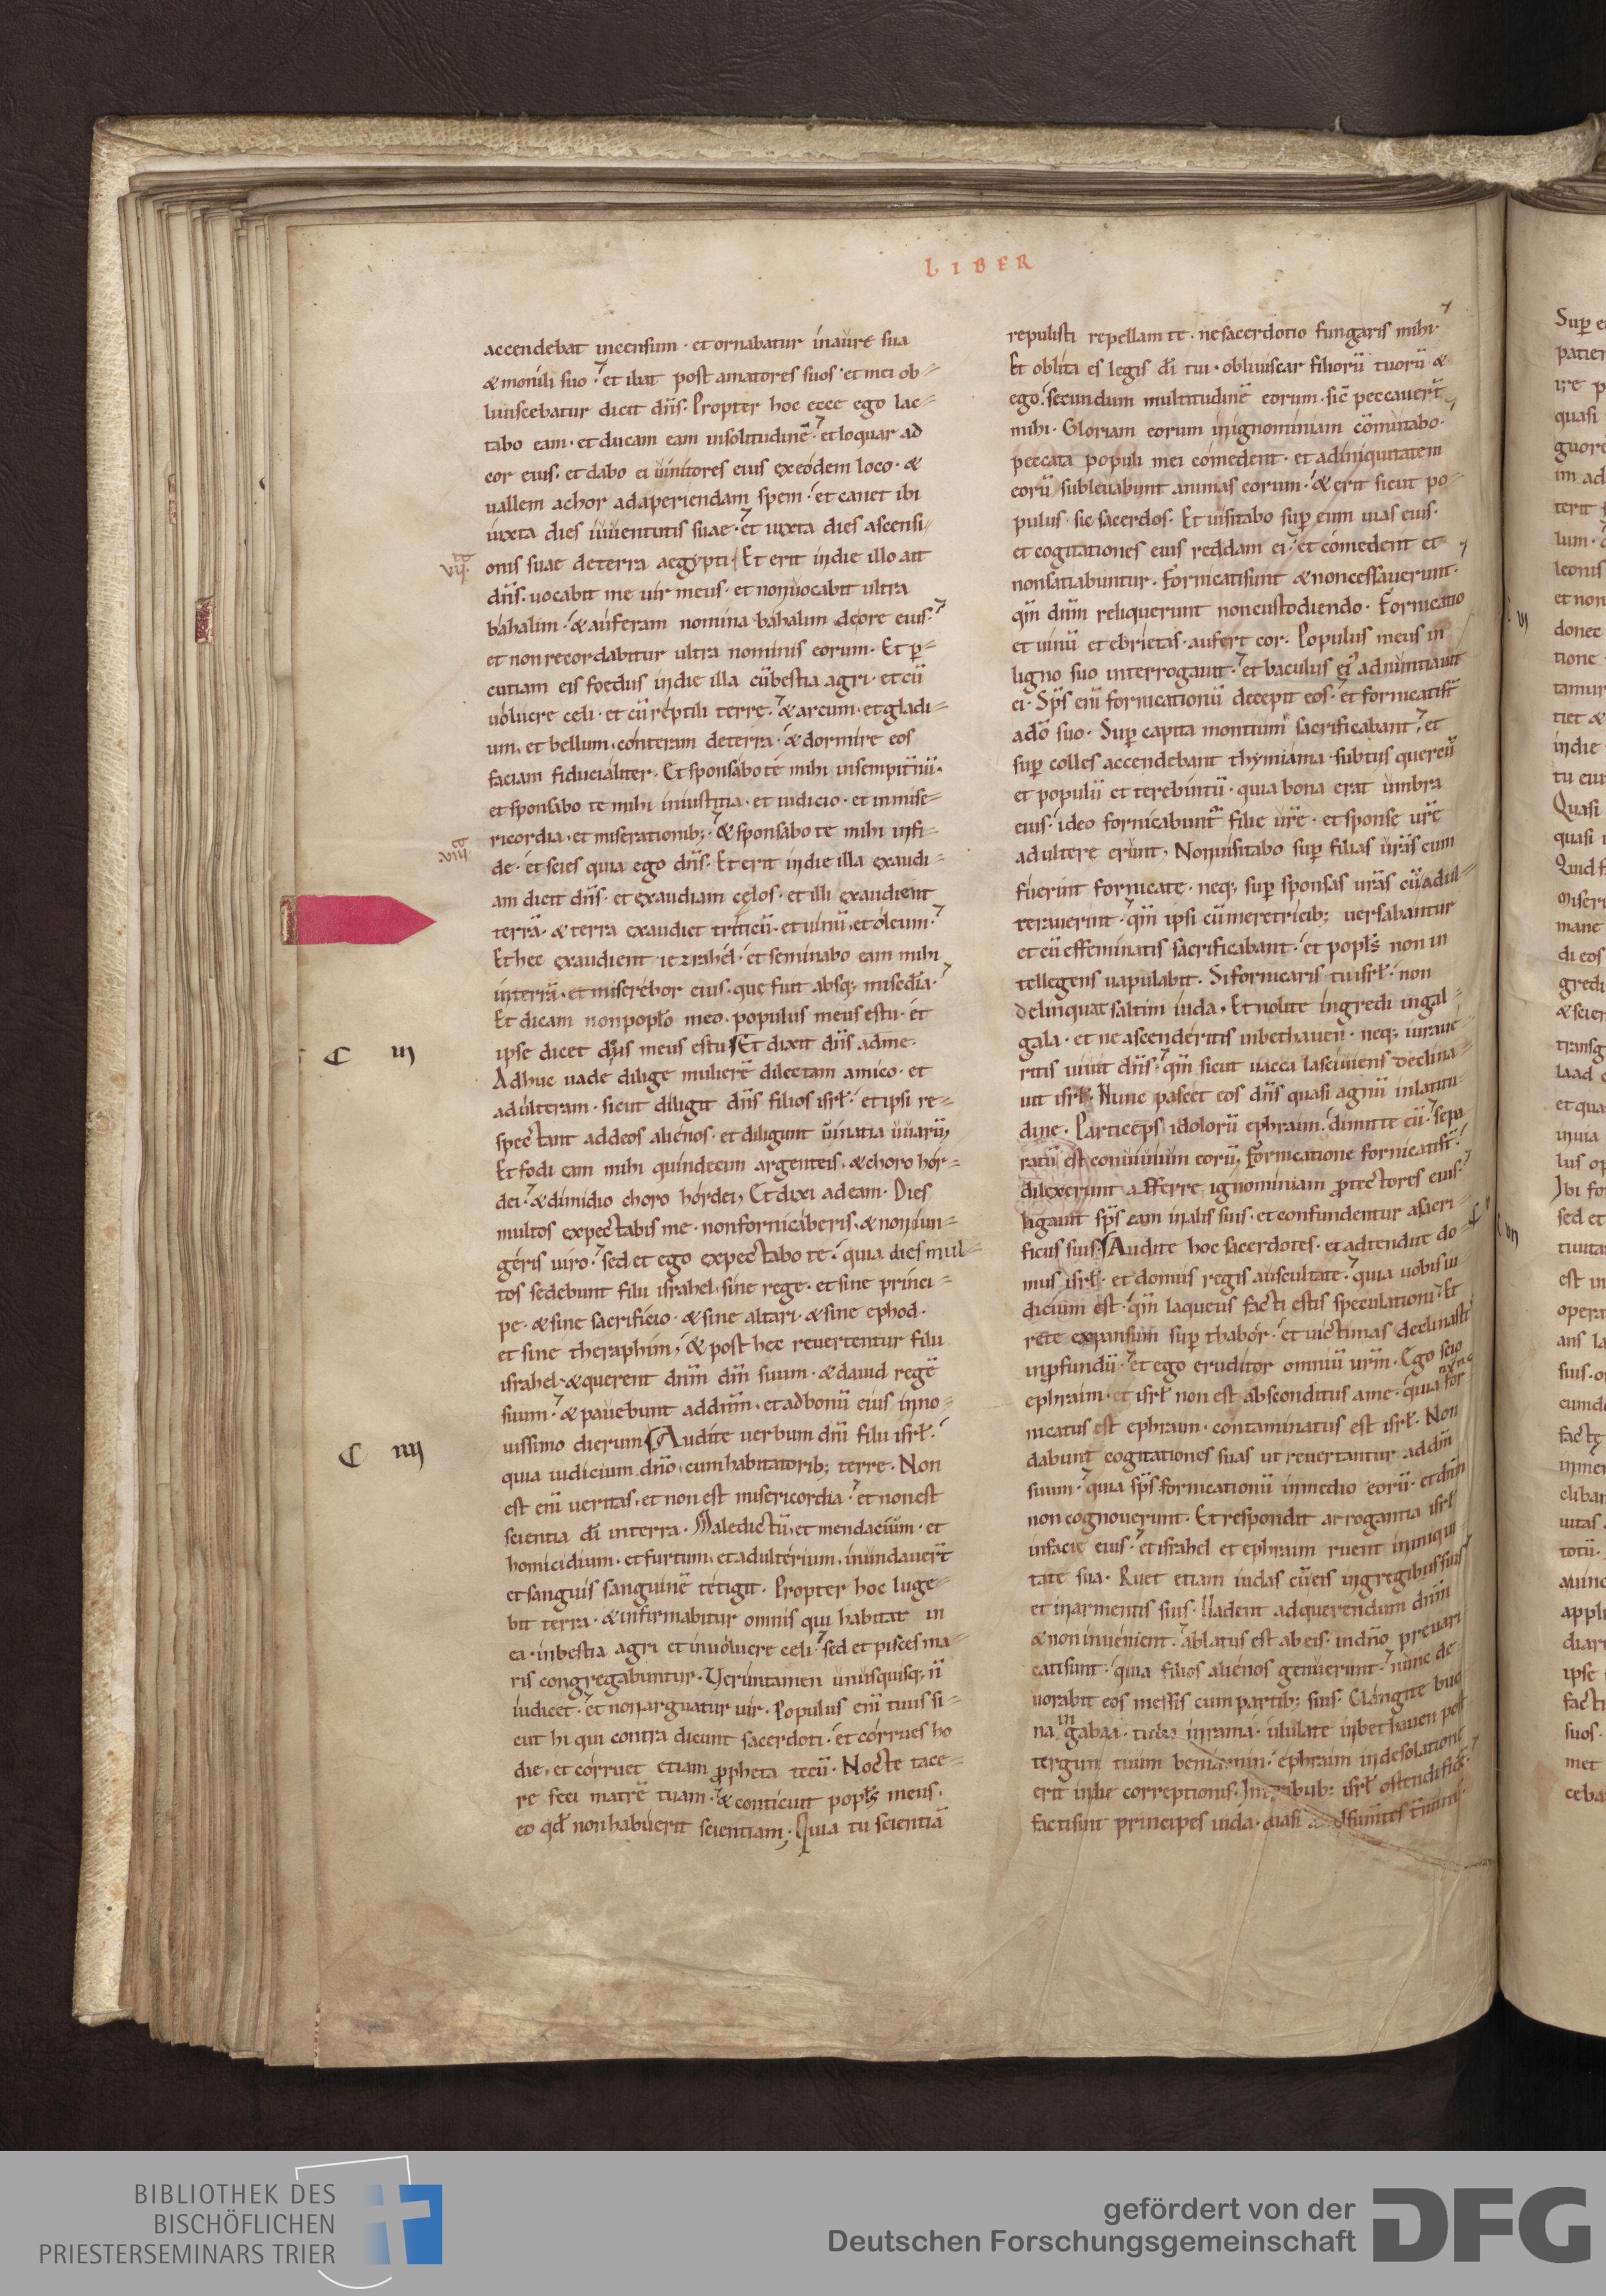 LIBER
accendebat incensum · et ornabatur inaure sua
& monili suo · et ibat post amatores suos · et mei ob-
liuiscebatur dicit dñs. Propter hoc ecce ego lac-
tabo eam · et ducam eam insolitudinē · et loquar ad
cor eius · et dabo ei uinitores eius exeodem loco · &
uallem achor adaperiendam spem · et canet ibi
iuxta dies iuuentutis suae · et iuxta dies ascensi-
VII.
onis suae deterra aegypti. Et erit indie illo ait
dñs. uocabit me uir meus · et nonuocabit ultra
bahalim · & auferam nomina bahalim deore eius ·
et nonrecordabitur ultra nominis eorum. Et p̄-
cutiam eis foedus indie illa cūbestia agri · et cū
uolucre celi · et cū reptili terre · & arcum · et gladi-
um, et bellum, conteram deterra · & dormire eos
faciam fiducialiter. Et sponsabo te mihi insempit̄nū.
et sponsabo te mihi iniustitia · et iudicio · et inmise-
ricordia · et miserationib; · & sponsabo te mihi infi-
VIII.
de · et scies quia ego dñs. Et erit indie illa exaudi-
am dicit dñs · et exaudiam cęlos · et illi exaudient
terrā · & terra exaudiet triticū · et uinū, et oleum ·
Et hec exaudient iezrahel · et seminabo eam mihi
interrā · et miserebor eius · que fuit absq; misedīa ·
Et dicam nonpoplō meo · populus meus estu · et
ipse dicet dꝰs meus estu. Et dixit dñs adme.
C III
Adhuc uade dilige mulierē dilectam amico · et
adulteram · sicut diligit dñs filios isrł · et ipsi re-
spectant addeos alienos · et diligunt uinatia uuarū,
Et fodi eam mihi quindecim argenteis, & choro hor-
dei · & dimidio choro hordei, Et dixi adeam. Dies
multos expectabis me · nonfornicaberis, & noniun-
geris uiro · sed et ego expectabo te · quia dies mul-
tos sedebunt filii israhel, sine rege · et sine princi-
pe · & sine sacrificio · & sine altari · & sine ephod ·
et sine theraphim, & post hec reuertentur filii
israhel · & querent dñm dm̄ suum · & dauid regē
suum · & pauebunt addñm, et adbonū eius inno-
C IIII
uissimo dierum. Audite uerbum dñi filii isrł ·
quia iudicium dño, cumhabitatorib; terre. Non
est enī ueritas, et non est misericordia · et nonest
scientia dī interra. Maledictū, et mendacium · et
homicidium · et furtum, et adulterium, inundauert̄
et sanguis sanguinē tetigit. Propter hoc luge-
bit terra · & infirmabitur omnis qui habitat in
ea · inbestia agri et inuolucre celi · sed et pisces ma-
ris congregabuntur. Veruntamen unusquisq; ñ
iudicet · et nonarguatur uir. Populus enī tuus si-
cut hi qui contra dicunt sacerdoti · et corrues ho
die, et corruet etiam ꝓpheta tecū. Nocte tace-
re feci matrē tuam · & conticuit popłs meus,
eo qđ nonhabuerit scientiam, Quia tu scientiā
repulisti repellam te · nesacerdotio fungaris mihi ·
Et oblita es legis dī tui · obliuiscar filiorū tuorū &
ego. secundum multitudinē eorum · sic̄ peccauert̄
mihi. Gloriam eorum inignominiam cōmutabo.
peccata populi mei comedent · et adiniquitatem
eorū subleuabunt animas eorum · & erit sicut po-
pulus · sic sacerdos. Et uisitabo sup̄ eum uias eius.
et cogitationes eius reddam ei · et comedent et
nonsatiabuntur. Fornicatisunt & noncessauerunt.
qm̄ dñm reliquerunt noncustodiendo. Fornicatio
et uinū et ebrietas · aufert cor. Populus meus in
ligno suo interrogauit · et baculus eiꝰ adnuntiauit
ei. Sp̄s enī fornicationū decepit eos · et fornicatist̄
adō suo. Sup̄ capita montium sacrificabant · et
sup̄ colles accendebant thymiama · subtus quercū
et populū et terebintū · quia bona erat umbra
eius · ideo fornicabunt̄ filie ur̄e · et sponse ur̄e
adultere erunt, Nonuisitabo sup̄ filias ur̄as cum
fuerint fornicate · neq; sup̄ sponsas ur̄as cū adul-
terauerint · qm̄ ipsi cūmeretricib; uersabantur
et cū effeminatis sacrificabant · et popłs non in
tellegens uapulabit. Sifornicaris tuisrł · non
delinquat saltim iuda, Et nolite ingredi ingal-
gala · et ne ascenderitis inbethauen · neq; iuraue-
ritis uiuit dñs · qm̄ sicut uacca lasciuiens declina-
uit isrł. Nunc pascet eos dñs quasi agnū inlatitu-
dine. Particeps idolorū ephraim · dimitte eū · sepa
ratū est conuiuium eorū, Fornicatione fornicatist̄ ·
dilexerunt afferre ignominiam ꝓtectores eius ·
ligauit sp̄s eam inalis suis · et confundentur asacri-
ficiis suis. Audite hoc sacerdotes · et adtendite do-
mus isrł · et domus regis auscultate · quia uobis iu
dicium est · qm̄ laqueus facti estis speculationi · Et
rete expansum sup̄ thabor · et uictimas declinastis
inꝓfundū · et ego eruditor omniū ur̄m. Ego scio
ephraim · et isrł non est absconditus ame · quia nunc for
nicatus est ephraim · contaminatus est isrł. Non
dabunt cogitationes suas ut reuertantur addñm
suum · quia sp̄s fornicationū inmedio eorū · et dñm
non cognouerunt. Et respondit arrogantia isrł
infacie eius · et israhel et ephraim ruent ininiqui-
tate sua. Ruet etiam iudas cūeis ingregibus suis
et inarmentis suis. Uadent adquerendum dñm
& non inuenient · ablatus est abeis · indño preuari
catisunt · quia filios alienos genuerunt · nunc de-
uorabit eos messis cum partib; suis. Clangite buci
na in gabaa · tuba inrama · ululate inbethauen post
tergum tuum beniamin · ephraim indesolatione
erit indie correptionis. Intribub; isrł ostendi fidē ·
factisunt principes iuda · quasi adsumētes t̄minū ·
BIBLIOTHEK DES
BISCHÖFLICHEN
PRIESTERSEMINARS TRIER
gefördert von der
Deutschen Forschungsgemeinschaft
DFG